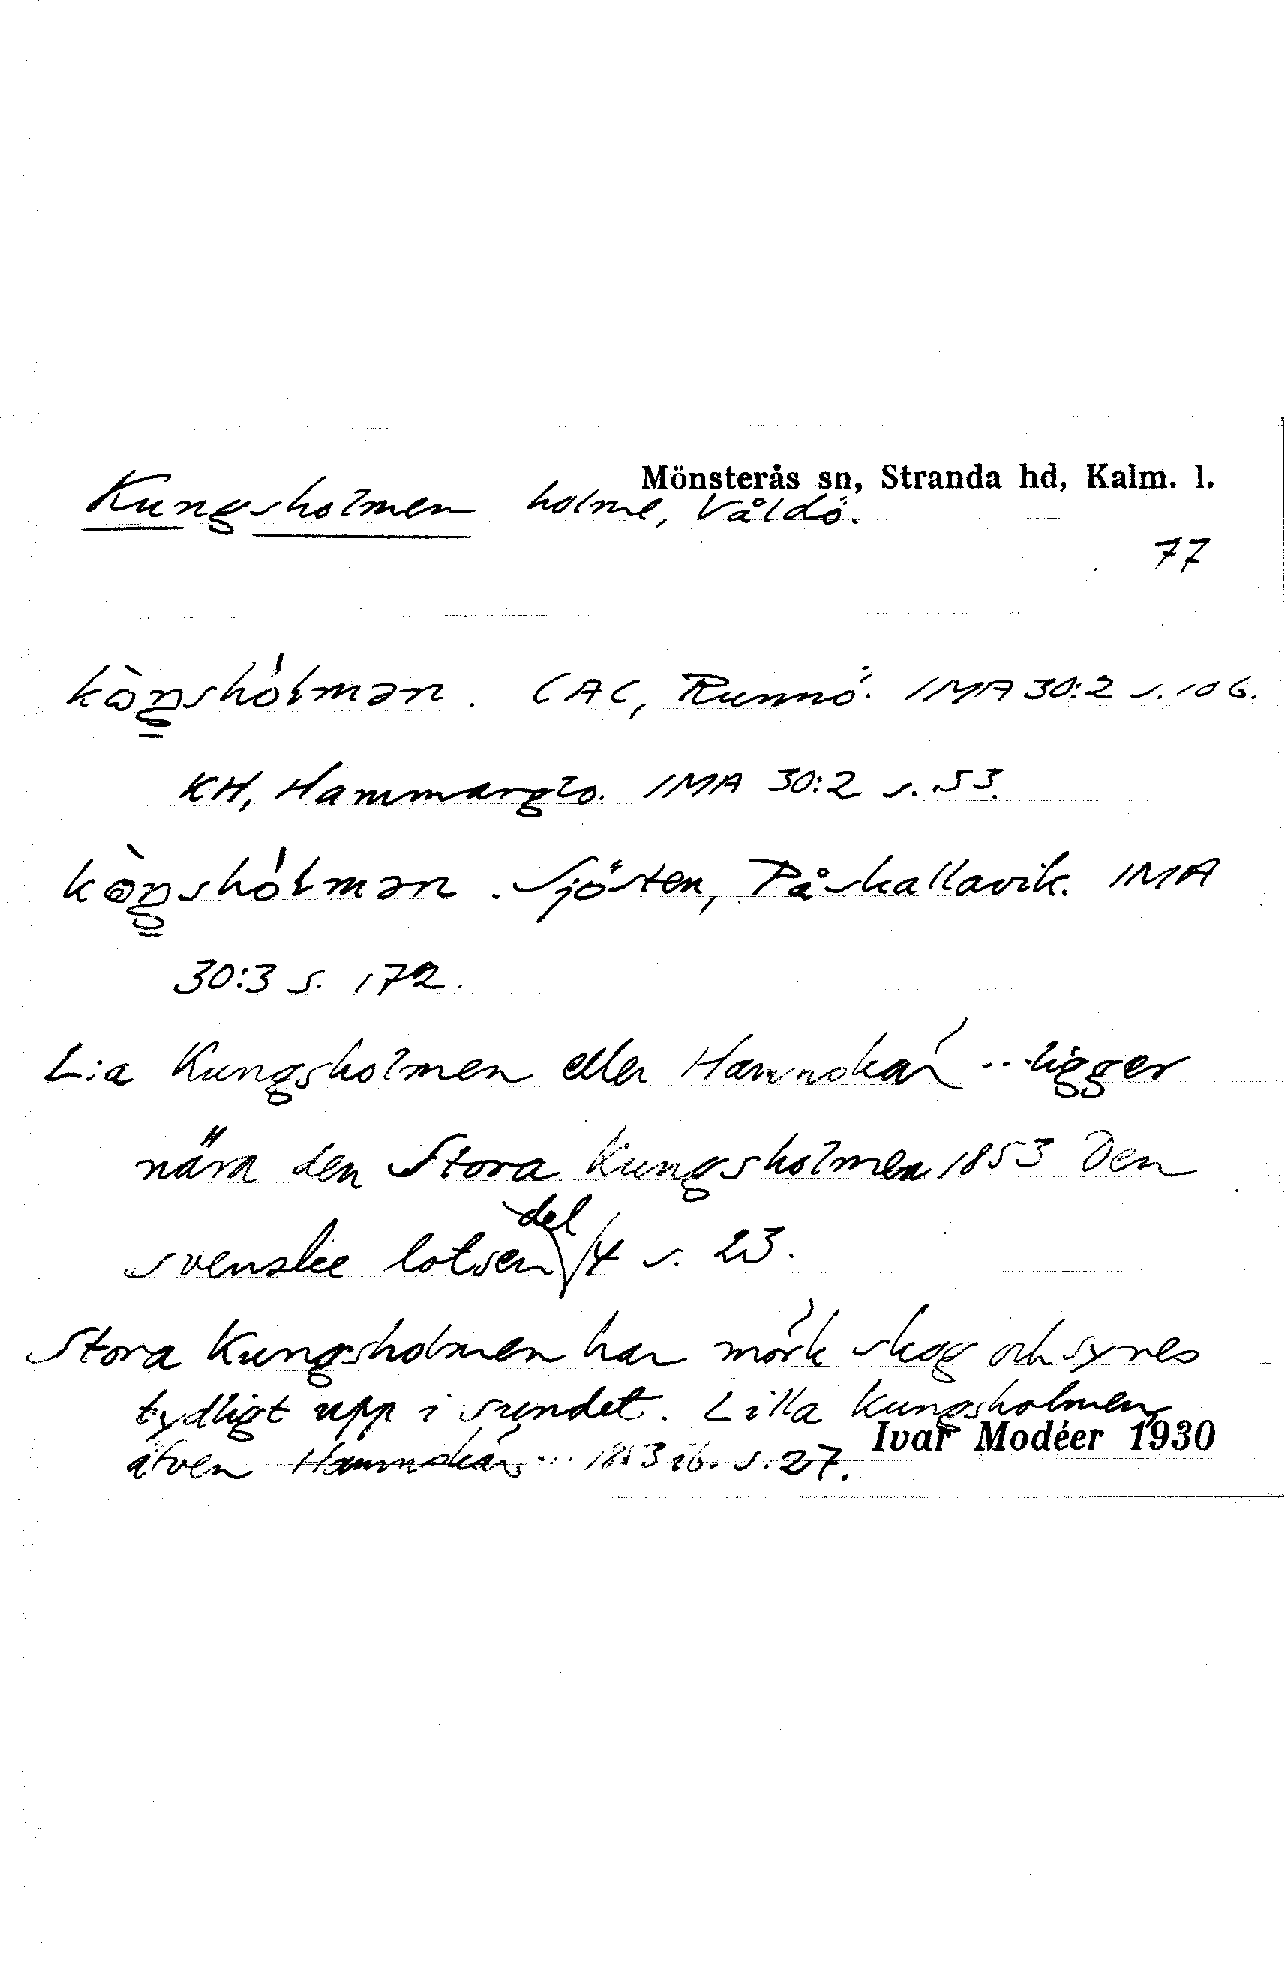 Mönsterås sn, Stranda hd, Kalm. l.
Kungsholmen holme, Våldö.
77
kòŋshólmən. CAC, Runnö. IMA 30:2 s. 106.
KH, Hammarglo. IMA 30:2 s. 53.
kòŋshólmən. Sjösten, Påskallavik. IMA
30:3 s. 172.
L:a Kungsholmen eller Hamnskär ... ligger
nära den Stora Kungsholmen 1853 Den
svenske lotsen del 4 s. 23.
Stora Kungsholmen har mörk skog och synes
tydligt upp i sundet. Lilla Kungsholmen
äfven Hamnskär ... 1853 ib. s. 27.
Ivar Modéer 1930